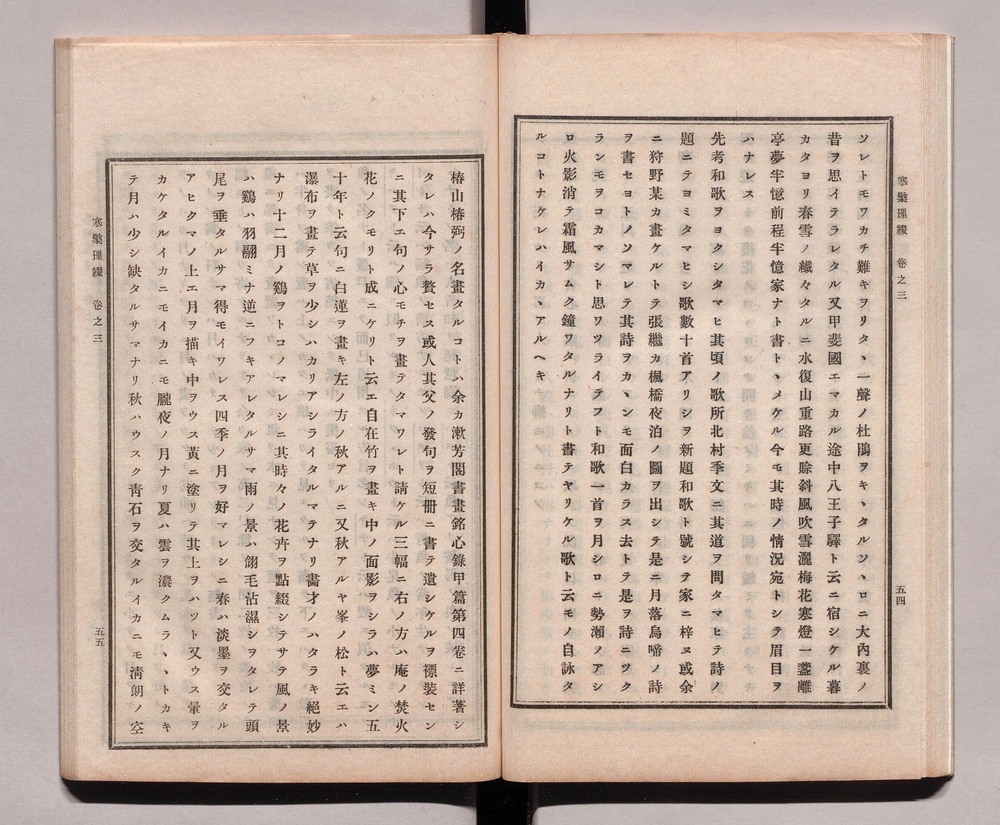 寒檠璅綴　卷之三
五四
ソレトモワカチ難キヲリタヽ一聲ノ杜鵑ヲキヽタルソヽロニ大內裏ノ
昔ヲ思イテラレタル又甲斐國エマカル途中八王子驛ト云ニ宿シケル暮
カタヨリ春雪ノ纖々タルニ水復山重路更賒斜風吹雪灑梅花寒燈一盞離
亭夢半憶前程半憶家ナト書トヽメケル今モ其時ノ情況宛トシテ眉目ヲ
ハナレス
先考和歌ヲヨクシタマヒ其頃ノ歌所北村季文ニ其道ヲ問タマヒテ詩ノ
題ニテヨミタマヒシ歌數十首アリシヲ新題和歌ト號シテ家ニ梓ヌ或余
ニ狩野某カ畫ケルトテ張繼カ楓橋夜泊ノ圖ヲ出シテ是ニ月落烏啼ノ詩
ヲ書セヨトノソマレテ其詩ヲカヽンモ面白カラス去トテ是ヲ詩ニツク
ランモヲコカマシト思ワツライテラフト和歌一首ヲ月シロニ勢瀨ノアシ
ロ火影消テ霜風サムク鐘ワタルナリト書テヤリケル歌ト云モノ自詠タ
ルコトナケレハイカヽアルヘキ
椿山椿弼ノ名畫タルコトハ余カ漱芳閣書畫銘心錄甲篇第四卷ニ詳著シ
タレハ今サラ贅セス或人其父ノ發句ヲ短冊ニ書テ遺シケルヲ褾裝セン
ニ其下エ句ノ心モチヲ畫テタマワレト請ケル三幅ニ右ノ方ハ庵ノ焚火
花ノクモリト成ニケリト云エ自在竹ヲ畫キ中ノ面影ヲシラハ夢ミン五
十年ト云句ニ白蓮ヲ畫キ左ノ方ノ秋アルニ又秋アルヤ峯ノ松ト云エハ
瀑布ヲ畫テ草ヲ少シハカリアシライタルマテナリ畵才ノハタラキ絕妙
ナリ十二月ノ鷄ヲトコノマレシニ其時々ノ花卉ヲ點綴シテサテ風ノ景
ハ鷄ハ羽翮ミナ逆ニフキアレタルサマ雨ノ景ハ翎毛沾濕シヲタレテ頭
尾ヲ垂タルサマ得モイワレス四季ノ月ヲ好マレシニ春ハ淡墨ヲ交タル
アヒクマノ上エ月ヲ描キ中ヲウス黃ニ塗リテ其上ヲハツト又ウス暈ヲ
カケタルイカニモイカニモ朧夜ノ月ナリ夏ハ雲ヲ濃クムラヽヽトカキ
テ月ハ少シ缺タルサマナリ秋ハウスク靑石ヲ交タルイカニモ淸朗ノ空
寒檠璅綴　卷之三
五五